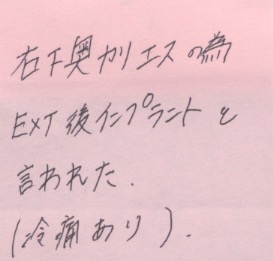 右下奥カリエスの為
EXT後インプラントと
言われた.
(冷痛あり).